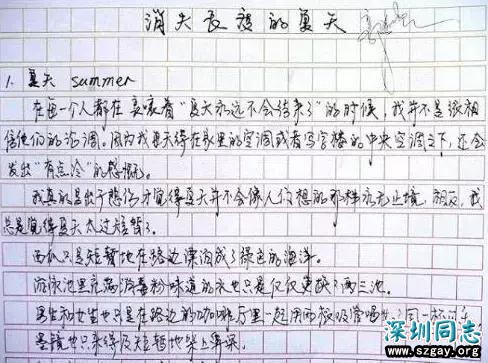 消失长度的夏天
1. 夏天 summer
在每一个人都在哀嚎着“夏天永远不会结束了”的时候，我并不是很相
信他们的论调。因为我每天缩在家里的空调或者写字楼的中央空调之下，还会
发出“有点冷”的感慨。
我真的是出于想法才觉得夏天并不会像人们想的那样永无止境，相反，我
总是觉得夏天太过短暂了。
西瓜只是短暂地在路边漂流成了绿色的海洋。
游泳池里充满消毒粉味道的水也只是仅仅更换了两三池。
男生和女生也只是在路边的咖啡厅里一起用两根吸管喝
墨镜也只来得及短暂地架上鼻梁。
深圳同志
www.szgay.org